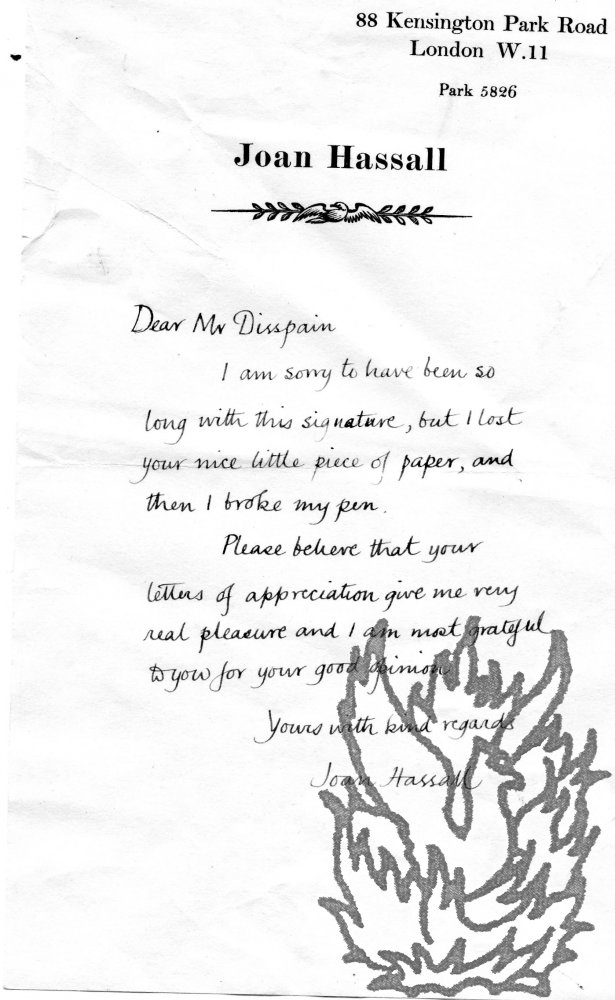 88 Kensington Park Road
London W.11
Park 5826
Joan Hassall
Dear Mr Disspain
I am sorry to have been so
long with this signature, but I lost
your nice little piece of paper, and
then I broke my pen.
Please believe that your
letters of appreciation give me very
real pleasure and I am most grateful
to you for your good opinion.
Yours with kind regards
Joan Hassall